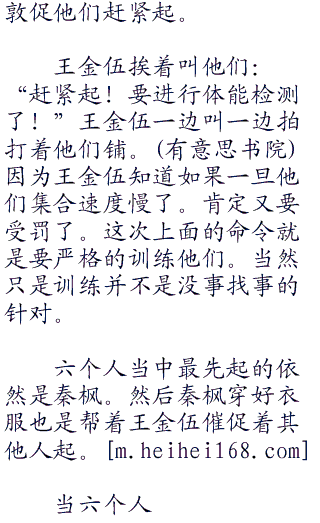 敦促他们赶紧起。
王金伍挨着叫他们：
“赶紧起！要进行体能检测
了！”王金伍一边叫一边拍
打着他们铺。(有意思书院)
因为王金伍知道如果一旦他
们集合速度慢了。肯定又要
受罚了。这次上面的命令就
是要严格的训练他们。当然
只是训练并不是没事找事的
针对。
六个人当中最先起的依
然是秦枫。然后秦枫穿好衣
服也是帮着王金伍催促着其
他人起。[m.heihei168.com]
当六个人